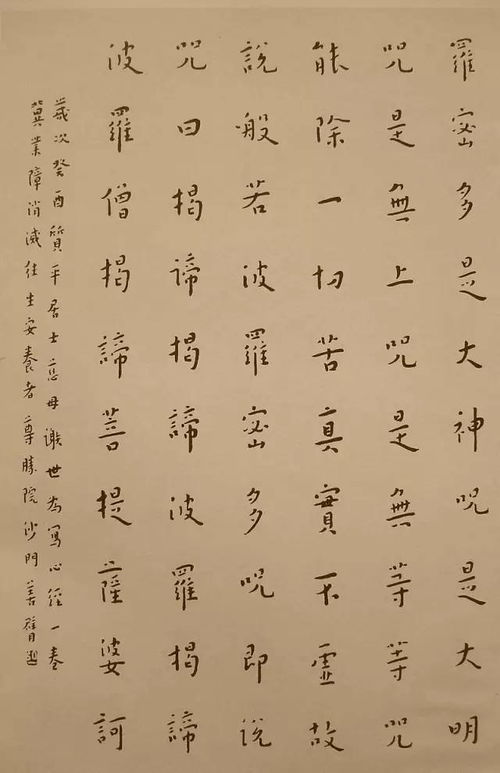 羅密多是大神呪是大明
呪是無上呪是無等等呪
能除一切苦真實不虛故
說般若波羅密多呪即說
呪曰揭諦揭諦波羅揭諦
波羅僧揭諦菩提薩婆訶
歲次癸酉質平居士亡母謝世為寫心經一卷
冀業障消滅往生安養者尊勝院沙門善臂